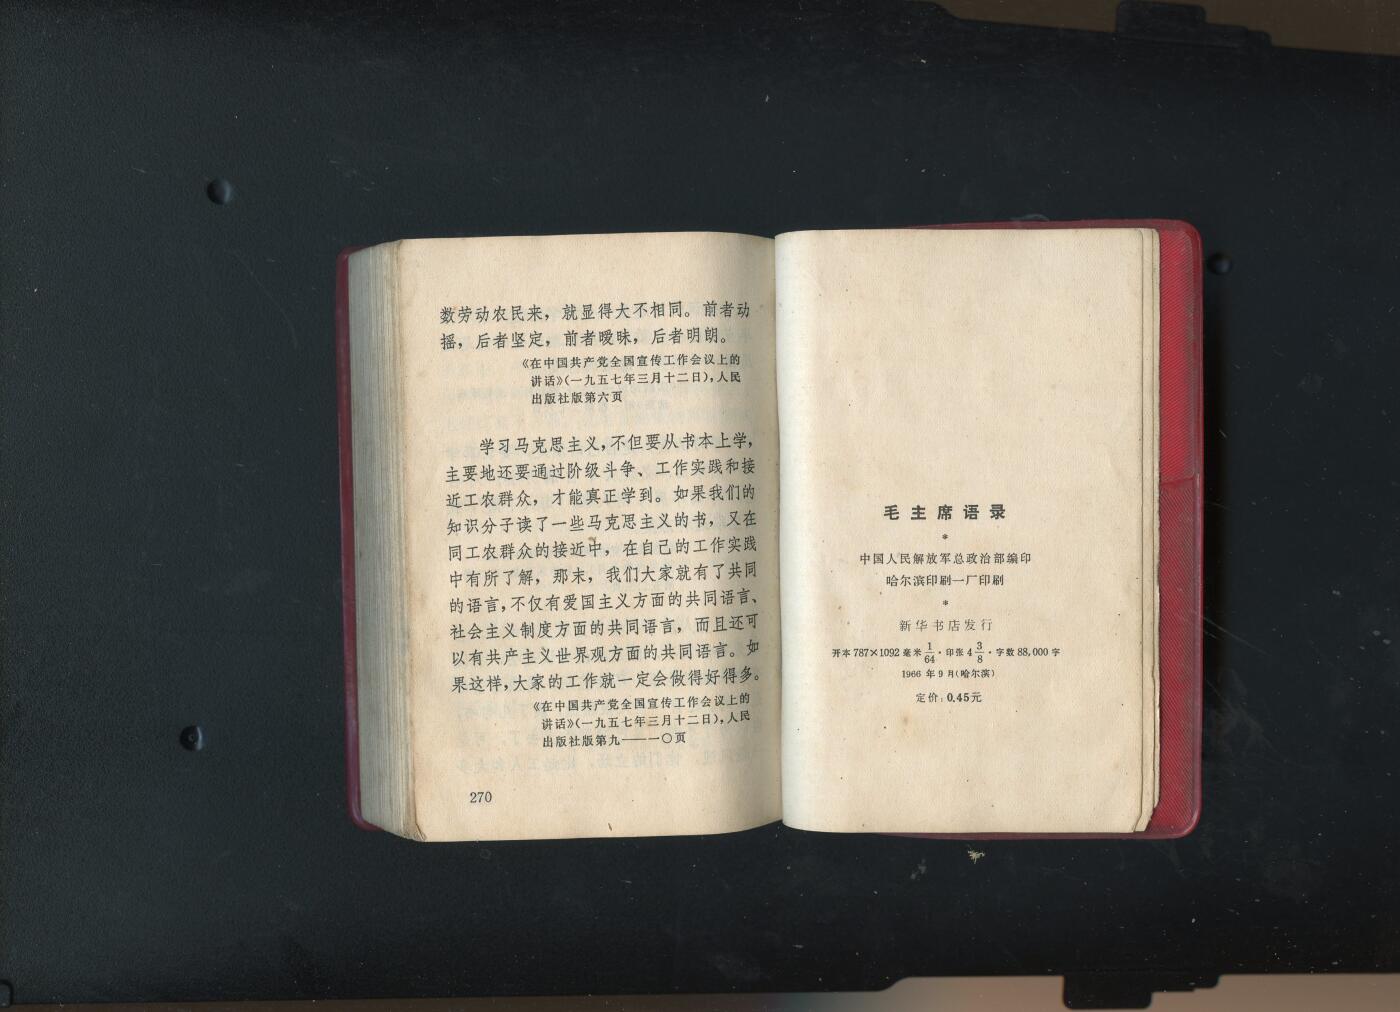 数劳动农民来，就显得大不相同。前者动
摇，后者坚定，前者暧昧，后者明朗。
《在中国共产党全国宣传工作会议上的
讲话》（一九五七年三月十二日），人民
出版社版第六页
学习马克思主义，不但要从书本上学，
主要地还要通过阶级斗争、工作实践和接
近工农群众，才能真正学到。如果我们的
知识分子读了一些马克思主义的书，又在
同工农群众的接近中，在自己的工作实践
中有所了解，那末，我们大家就有了共同
的语言，不仅有爱国主义方面的共同语言、
社会主义制度方面的共同语言，而且还可
以有共产主义世界观方面的共同语言。如
果这样，大家的工作就一定会做得好得多。
《在中国共产党全国宣传工作会议上的
讲话》（一九五七年三月十二日），人民
出版社版第九——一〇页
270
毛主席语录
*
中国人民解放军总政治部编印
哈尔滨印刷一厂印刷
*
新华书店发行
开本 787×1092 毫米 1/64 · 印张 4 3/8 · 字数 88,000 字
1966 年 9 月（哈尔滨）
定价：0.45元